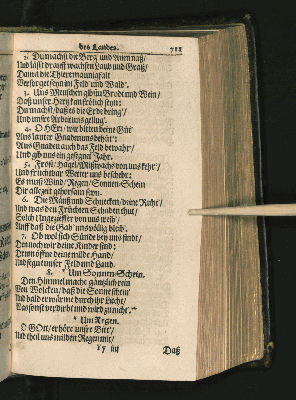 des Landes. 711
2. Du machst die Berg und Auen naß/
Und läst drauff wachsen Laub und Graß/
Damit die Thiere mannigfalt
Versorget seyn im Feld und Wald.
3. Uns Menschen gibstu Brodt und Wein/
Daß unser Hertz kan frölich seyn:
Du machst/ daß es die Erde bring'/
Und unser Arbeit uns geling'.
4. O HErr/ wir bitten deine Güt'
Aus lauter Gnaden uns behüt':
Aus Gnaden auch das Feld bewahr/
Und gib uns ein gesegnet Jahr.
5. Frost/ Hagel/ Mißwachs von uns kehr'/
Und fruchtbar Wetter uns bescher:
Es muß Wind/ Regen/ Sonnen-Schein
Dir allezeit gehorsam seyn.
6. Die Mäuß und Schnecken/ deine Ruht/
Und was den Früchten Schaden thut/
Solch Ungeziefer von uns weich'/
Auff daß die Gab' uns völlig bleib'.
7. Ob wol sich Sünde bey uns findt/
Dennoch wir deine Kinder sind:
Drum öffne deine milde Hand/
Und segne unser Feld und Land.
8. * Um Sonnen-Schein.
Den Himmel mache gäntzlich rein
Von Wolcken/ daß die Sonne schein/
Und bald erwärme durch ihr Licht/
Was sonst verdirbt und wird zu nicht. *
* Um Regen.
O GOtt/ erhöre unser Bitt'/
Und theil uns milden Regen mit/
Yy iiij Daß